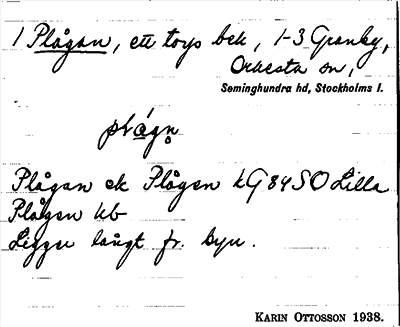 1 Plågan, ett torp bek, 1-3 Granby,
Orkesta sn,
Seminghundra hd, Stockholms l.
plågn̥
Plågan ek Plågen kG 84 SO Lilla
Plågen kb
Ligger långt fr. byn.
KARIN OTTOSSON 1938.